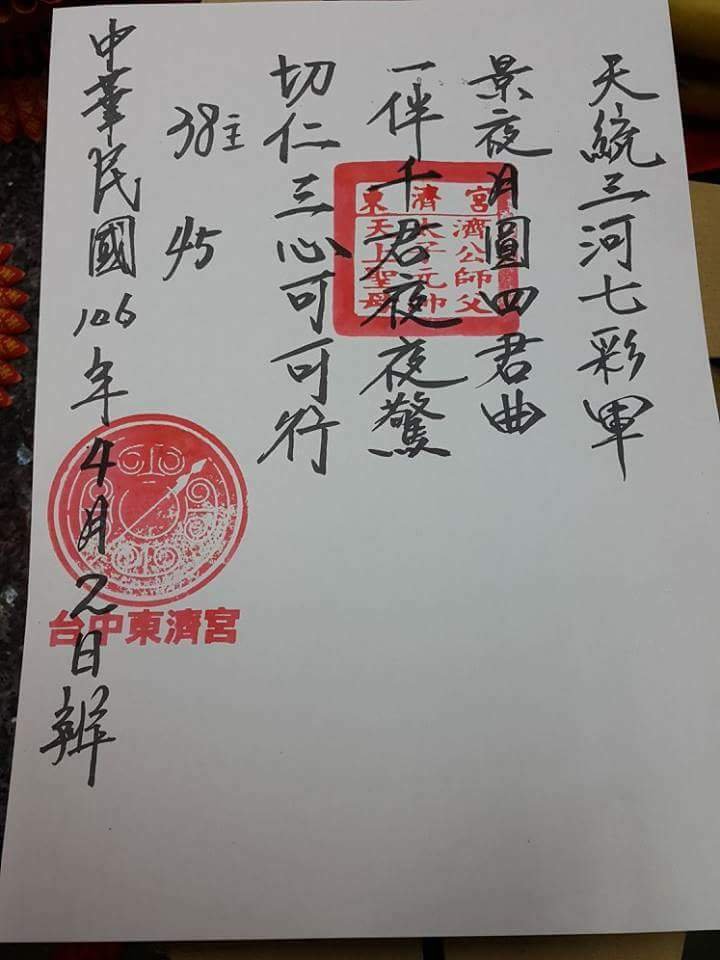 天統三河七彩軍
景夜月圓四君曲
一伴千君夜夜驚
切仁三心可可行
38主 45
中華民國106年4月2日辦
東濟宮
濟公師父
太子元帥
天上聖母
台中東濟宮